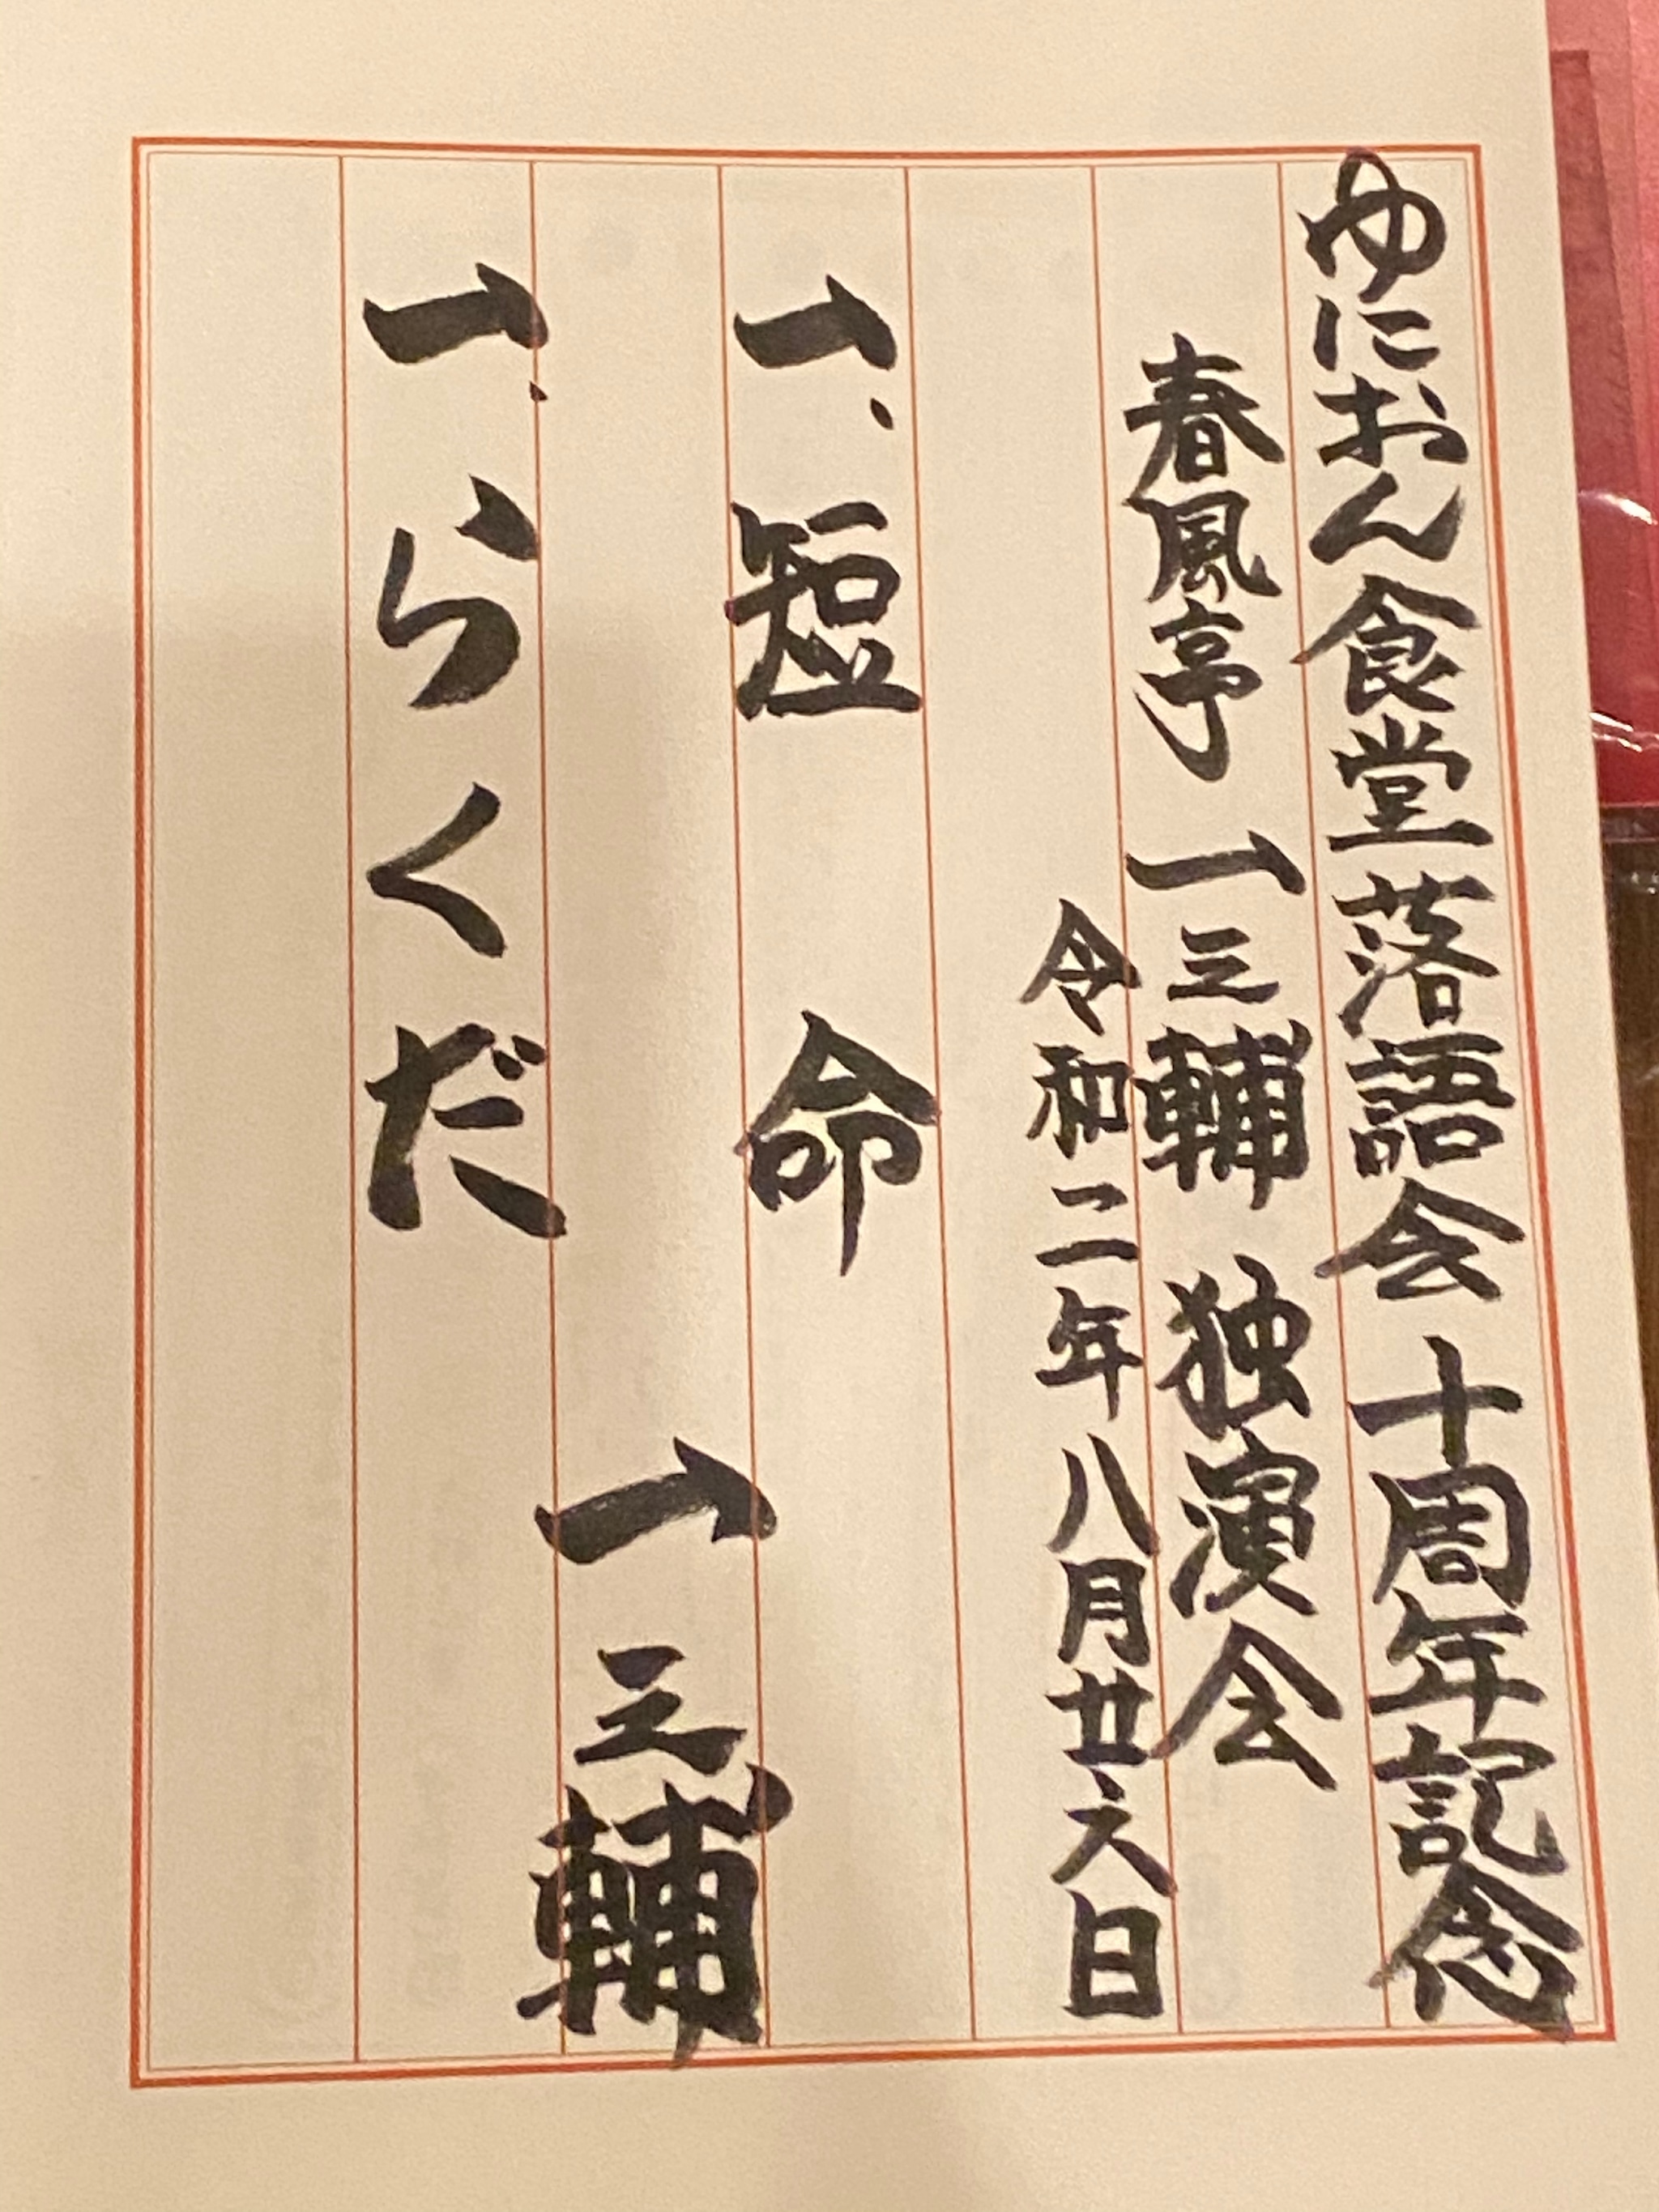 ゆにおん食堂落語会 十周年記念
春風亭 一三輔 独演会
令和二年八月廿六日
一、短命
一三輔
一、らくだ